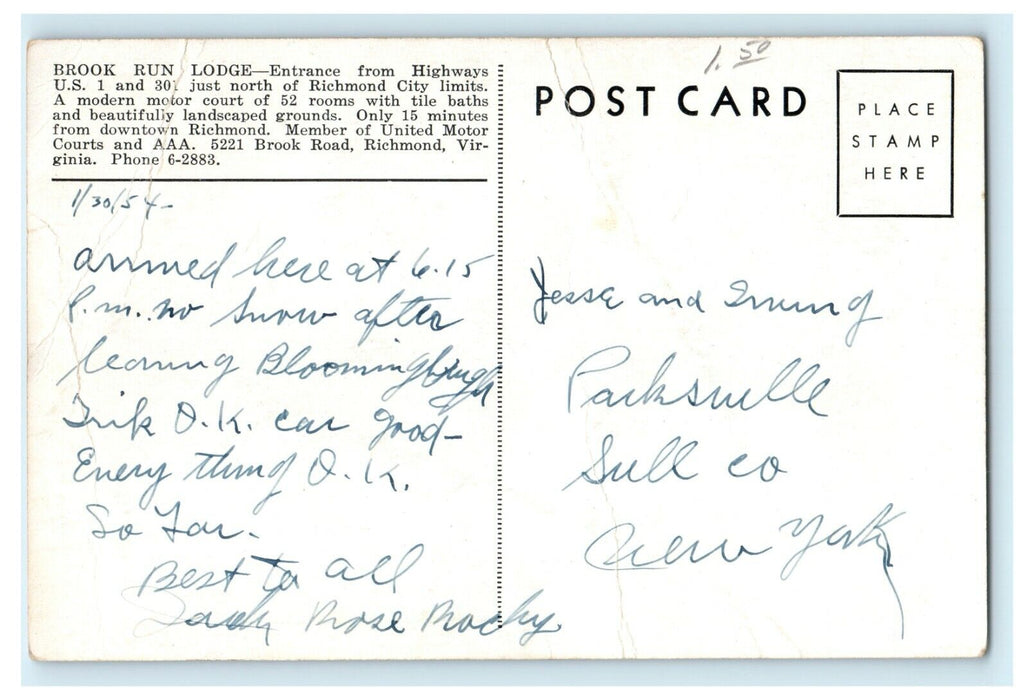 1.50
BROOK RUN LODGE—Entrance from Highways
U.S. 1 and 301 just north of Richmond City limits.
A modern motor court of 52 rooms with tile baths
and beautifully landscaped grounds. Only 15 minutes
from downtown Richmond. Member of United Motor
Courts and AAA. 5221 Brook Road, Richmond, Vir-
ginia. Phone 6-2883.
POST CARD
PLACE
STAMP
HERE
1/30/54-
arrived here at 6.15
P.m. no snow after
leaving Bloomingburgh
Trik O.K. car good-
Every thing O.K.
So Far.
Best to all
Jack Rose Rocky
Jesse and Irving
Parksville
Sull co
New York